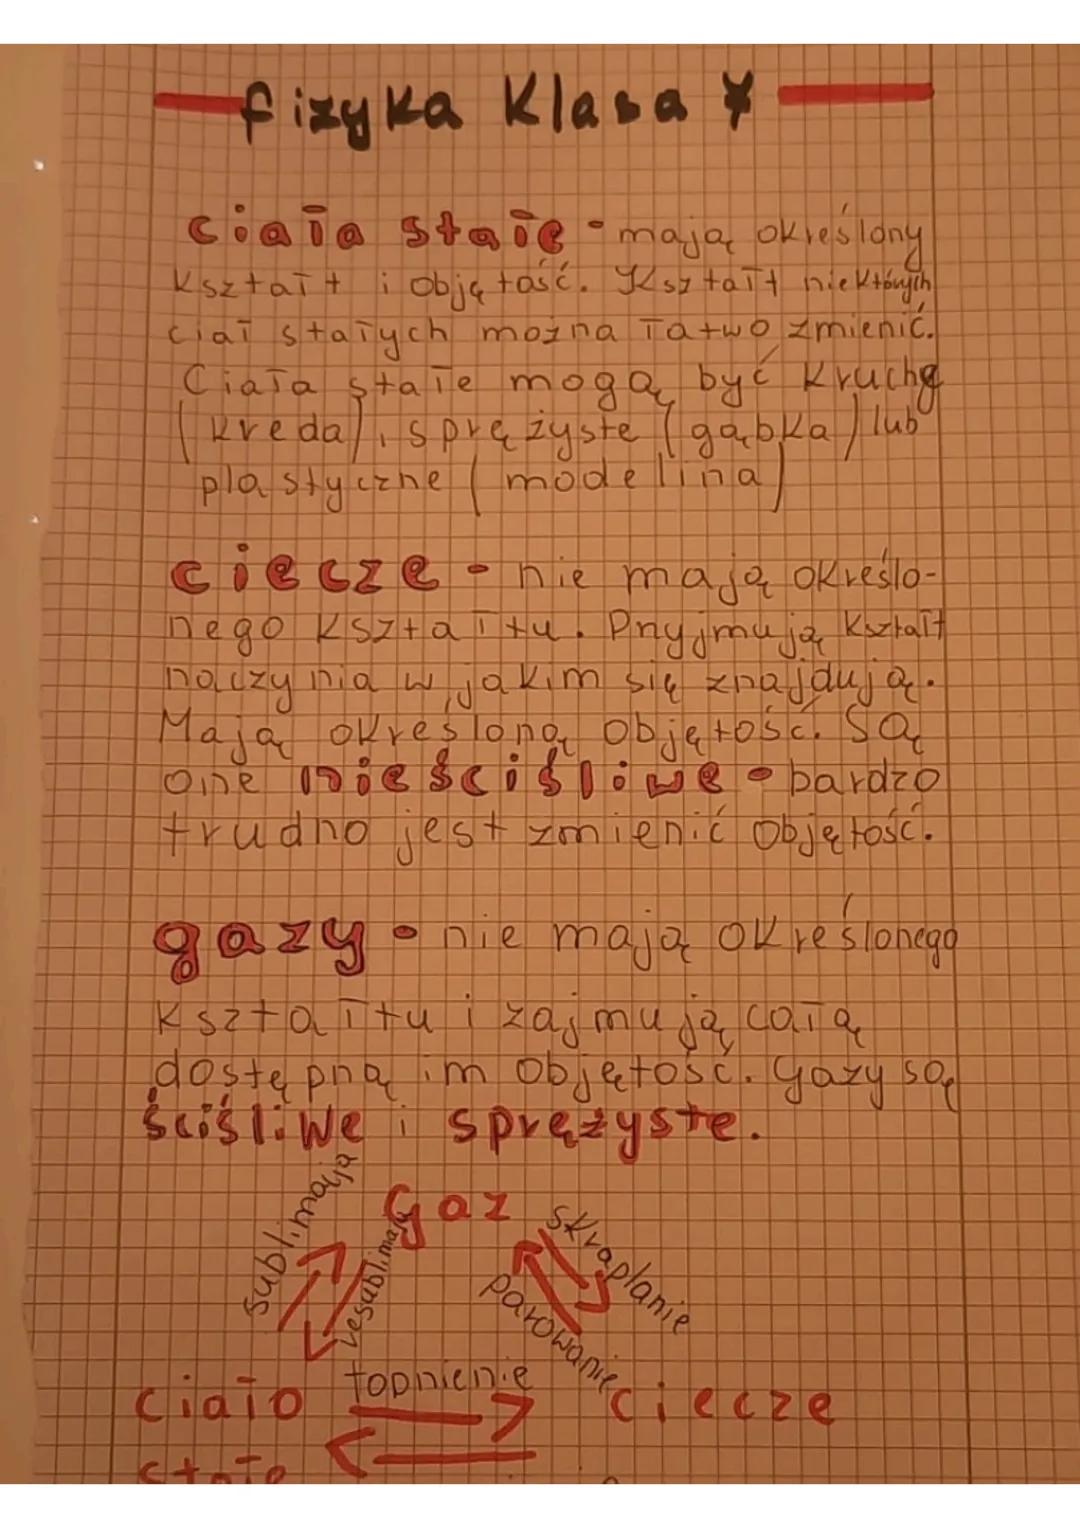 fizyka Klasa 7
ciała stałe - mają określony
kształt i objętość. Kształt niektórych
ciał stałych można łatwo zmienić.
Ciała stałe mogą być kruche
(kreda), sprężyste (gąbka) lub
plastyczne (modelina)
ciecze - nie mają określo-
nego kształtu. Przyjmują kształt
naczynia w jakim się znajdują.
Mają określoną objętość. Są
one nieściśliwe - bardzo
trudno jest zmienić objętość.
gazy - nie mają określonego
kształtu i zajmują całą
dostępną im objętość. Gazy są
ściśliwe i sprężyste.
sublimacja
Gaz
resublimacja
skraplanie
parowanie
topnienie
ciało
ciecze
stałe